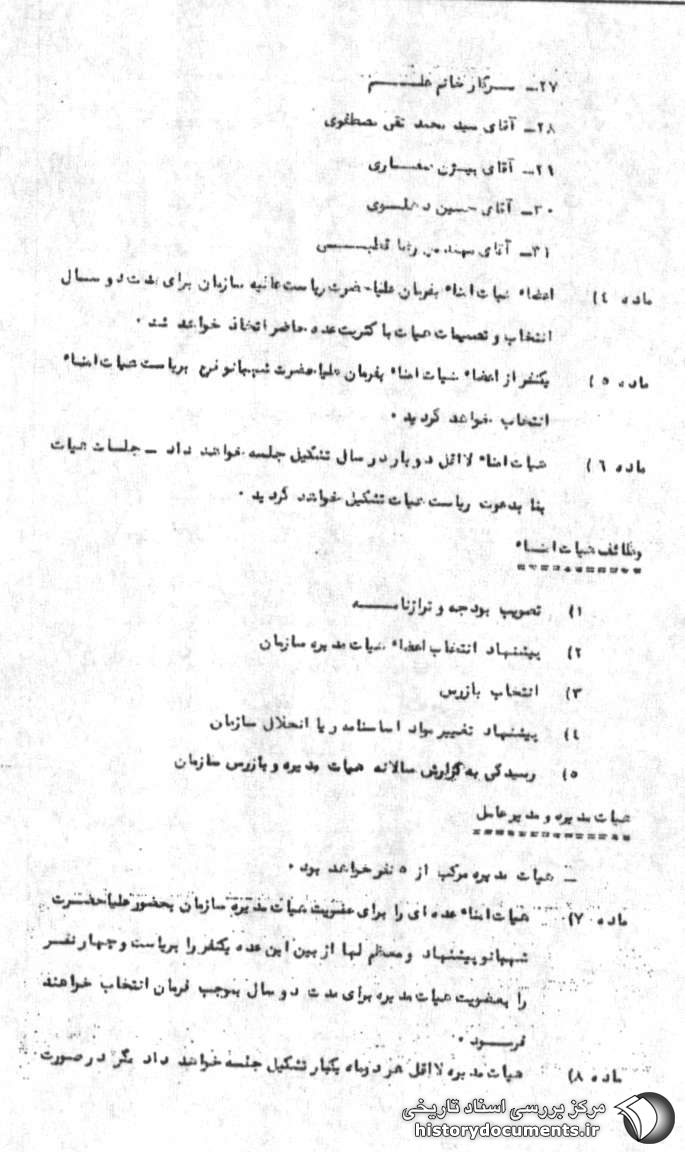 ۲۷ــ سرکار خانم علـــم
۲۸ــ آقای سید محمد تقی مصطفوی
۲۹ــ آقای بیژن صفـاری
۳۰ــ آقای حسین دهلـوی
۳۱ــ آقای مهندس رضا قطبـــی
ماده ٤) اعضاء هیات امناء بفرمان علیاحضرت ریاست عالیه سازمان برای مدت دو سـال
انتخاب و تصمیمات هیات با کثریت عده حاضر اتخاذ خواهد شد .
ماده ۵) یکنفر از اعضاء هیات امناء بفرمان علیاحضرت شهبانو فرح بریاست هیات امنـاء
انتخاب خواهد گردید .
ماده ٦) هیات امناء لااقل دو بار در سال تشکیل جلسه خواهند داد ــ جلسات هیات
بنا بدعوت ریاست هیات تشکیل خواهد گردید .
وظائف هیات امنـاء
۱) تصویب بودجه و ترازنامـــه
۲) پیشنهاد انتخاب اعضاء هیات مدیره سازمان
۳) انتخاب بازرس
٤) پیشنهاد تغییر مواد اساسنامه و یا انحلال سازمان
۵) رسیدگی به گزارش سالانه هیات مدیره و بازرس سازمان
هیات مدیره و مدیر عامل
ــ هیات مدیره مرکب از ۵ نفر خواهد بود .
ماده ۷) هیات امناء عده ای را برای عضویت هیات مدیره سازمان بحضور علیاحضـرت
شهبانو پیشنهاد و معظم لها از بین این عده یکنفر را بریاست و چهار نفـر
را بعضویت هیات مدیره برای مدت دو سال بموجب فرمان انتخاب خواهند
فرمـــود .
ماده ۸) هیات مدیره لااقل هر دوماه یکبار تشکیل جلسه خواهند داد مگر در صورت
مرکز بررسی اسناد تاریخی
historydocuments.ir